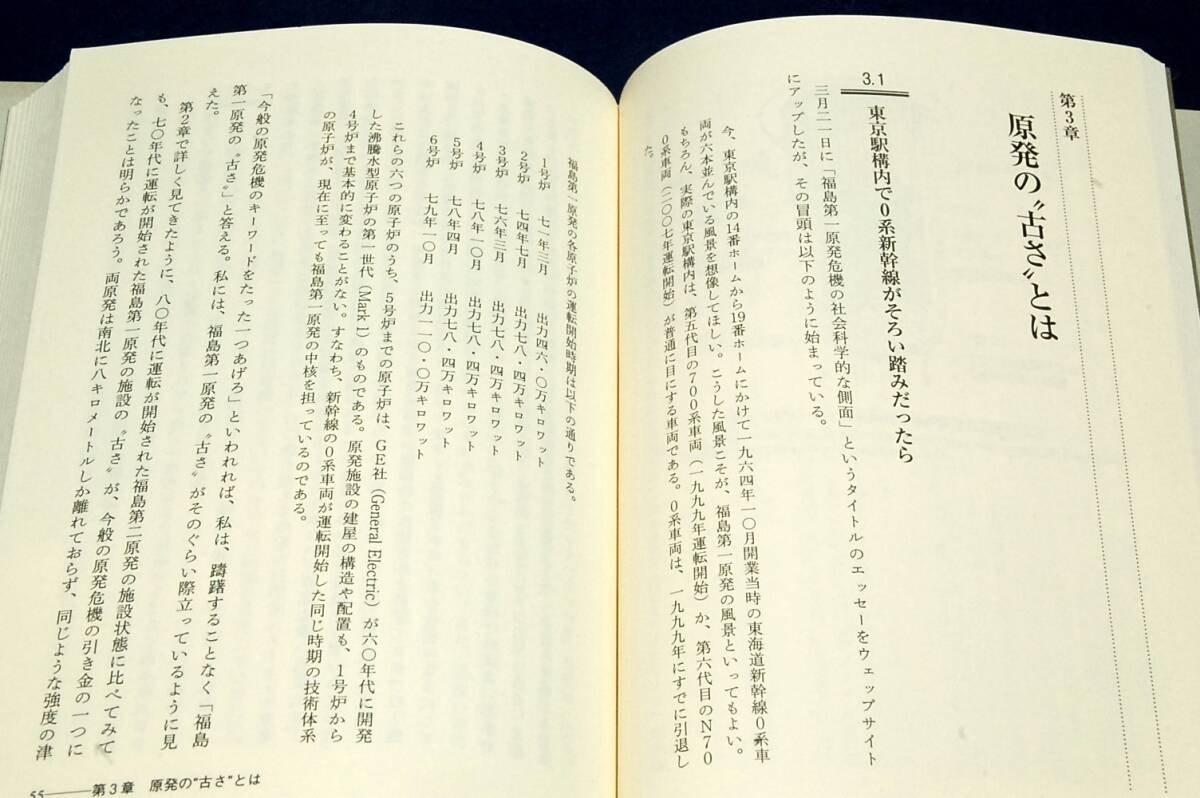 第3章
原発の〝古さ〟とは
3.1
東京駅構内で0系新幹線がそろい踏みだったら
三月二一日に「福島第一原発危機の社会科学的な側面」というタイトルのエッセーをウェッブサイト
にアップしたが、その冒頭は以下のように始まっている。
今、東京駅構内の14番ホームから19番ホームにかけて一九六四年一〇月開業当時の東海道新幹線0系車
両が六本並んでいる風景を想像してほしい。こうした風景こそが、福島第一原発の風景といってもよい。
もちろん、実際の東京駅構内は、第五代目の700系車両（一九九九年運転開始）か、第六代目のN70
0系車両（二〇〇七年運転開始）が普通に目にする車両である。0系車両は、一九九九年にすでに引退し
た。
福島第一原発の各原子炉の運転開始時期は以下の通りである。
1号炉　七一年三月　出力四六・〇万キロワット
2号炉　七四年七月　出力七八・四万キロワット
3号炉　七六年三月　出力七八・四万キロワット
4号炉　七八年一〇月　出力七八・四万キロワット
5号炉　七八年四月　出力七八・四万キロワット
6号炉　七九年一〇月　出力一一〇・〇万キロワット
これらの六つの原子炉のうち、5号炉までの原子炉は、GE社（General Electric）が六〇年代に開発
した沸騰水型原子炉の第一世代（Mark I）のものである。原発施設の建屋の構造や配置も、1号炉から
4号炉まで基本的に変わることがない。すなわち、新幹線の0系車両が運転開始した同じ時期の技術体系
の原子炉が、現在に至っても福島第一原発の中核を担っているのである。
「今般の原発危機のキーワードをたった一つあげろ」といわれれば、私は、躊躇することなく「福島
第一原発の〝古さ〟」と答える。私には、福島第一原発の〝古さ〟がそのぐらい際立っているように見
えた。
第2章で詳しく見てきたように、八〇年代に運転が開始された福島第二原発の施設状態に比べてみて
も、七〇年代に運転が開始された福島第一原発の施設の〝古さ〟が、今般の原発危機の引き金の一つに
なったことは明らかであろう。両原発は南北に八キロメートルしか離れておらず、同じような強度の津
55――第3章　原発の"古さ"とは